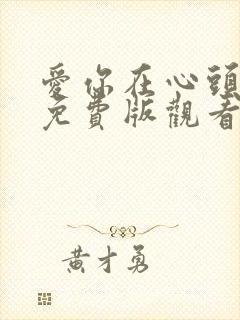 愛你在心頭
免費版觀看
黃才勇